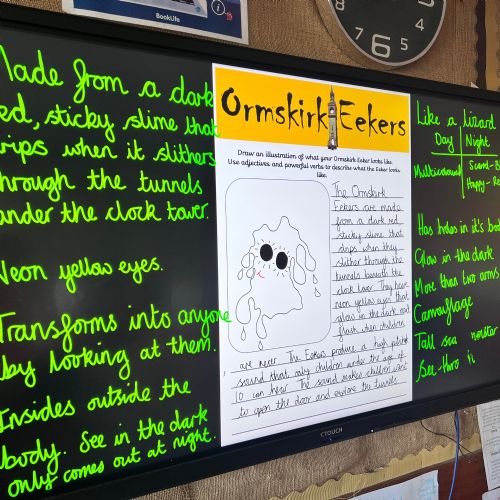 BookLife
Made from a dark
red, sticky slime that
drips when it slithers
through the tunnels
under the clock tower.
Neon yellow eyes.
Transforms into anyone
by looking at them.
Insides outside the
body. See in the dark
only comes out at night.
Ormskirk Eekers
Draw an illustration of what your Ormskirk Eeker looks like.
Use adjectives and powerful verbs to describe what the Eeker looks
like.
The Ormskirk
Eekers are made
from a dark red
sticky slime that
drips when they
slither through the
tunnels beneath the
clock tower. They have
neon yellow eyes that
glow in the dark and
flash when children
are near. The Eekers produce a high pitched
sound that only children under the age of
10 can hear. The sound makes children want
to open the door and explore the tunnels.
Like a lizard
Day Night
Multicoloured Scared - Bl
Happy - Re
Has holes in it's bo
Glow in the dark
More than two arms
Camouflage
Tall sea monster
See thro
CTOUCH
6
5
4
3
7
8